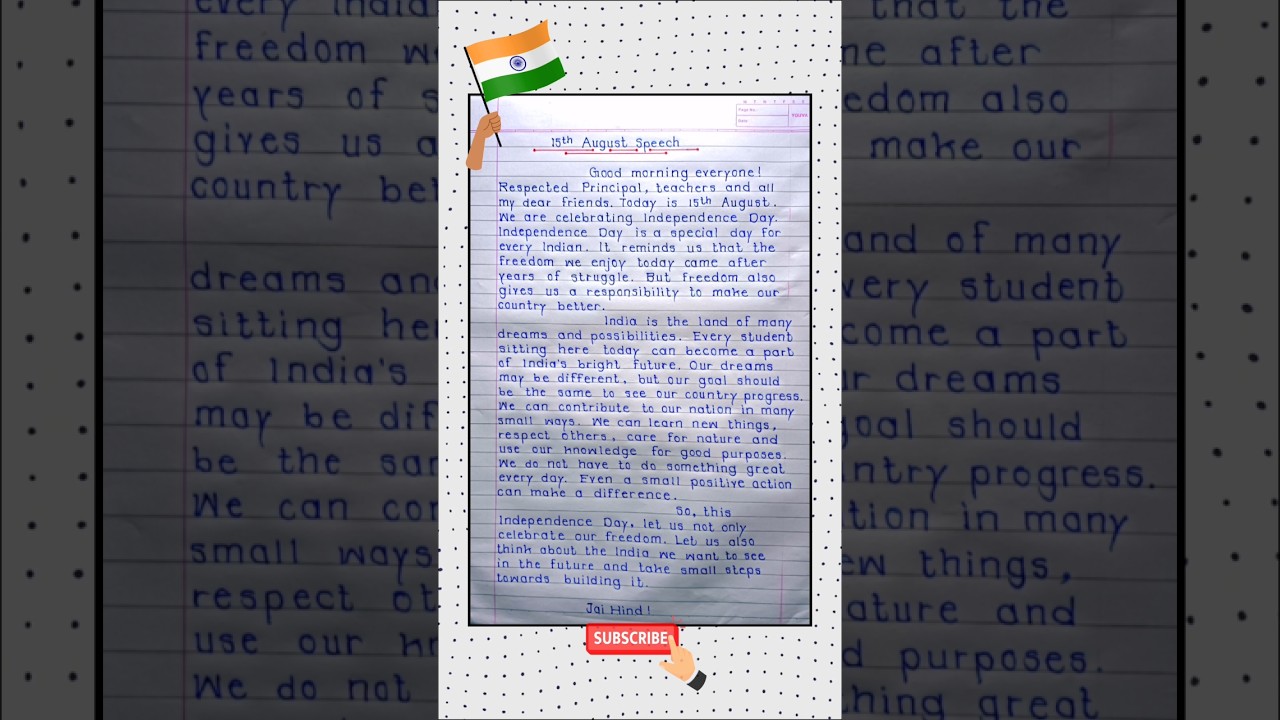 15th August Speech
Good morning everyone!
Respected Principal, teachers and all
my dear friends. Today is 15th August.
We are celebrating Independence Day.
Independence Day is a special day for
every Indian. It reminds us that the
freedom we enjoy today came after
years of struggle. But freedom also
gives us a responsibility to make our
country better.
India is the land of many
dreams and possibilities. Every student
sitting here today can become a part
of India's bright future. Our dreams
may be different, but our goal should
be the same to see our country progress.
We can contribute to our nation in many
small ways. We can learn new things,
respect others, care for nature and
use our knowledge for good purposes.
We do not have to do something great
every day. Even a small positive action
can make a difference.
So, this
Independence Day, let us not only
celebrate our freedom. Let us also
think about the India we want to see
in the future and take small steps
towards building it.
Jai Hind!
SUBSCRIBE